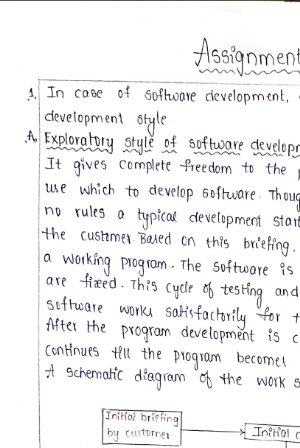 Assignment
1. In case of software development,
development style.
A. Exploratory style of software developm
It gives complete freedom to the
use which to develop software. Thoug
no rules a typical development start
the customer. Based on this briefing.
a working program. The software is
are fixed. This cycle of testing and
software works satisfactorily for
After the program development is c
Continues till the program becomes
A schematic diagram of the work s
Initial briefing
by customer
Initial c